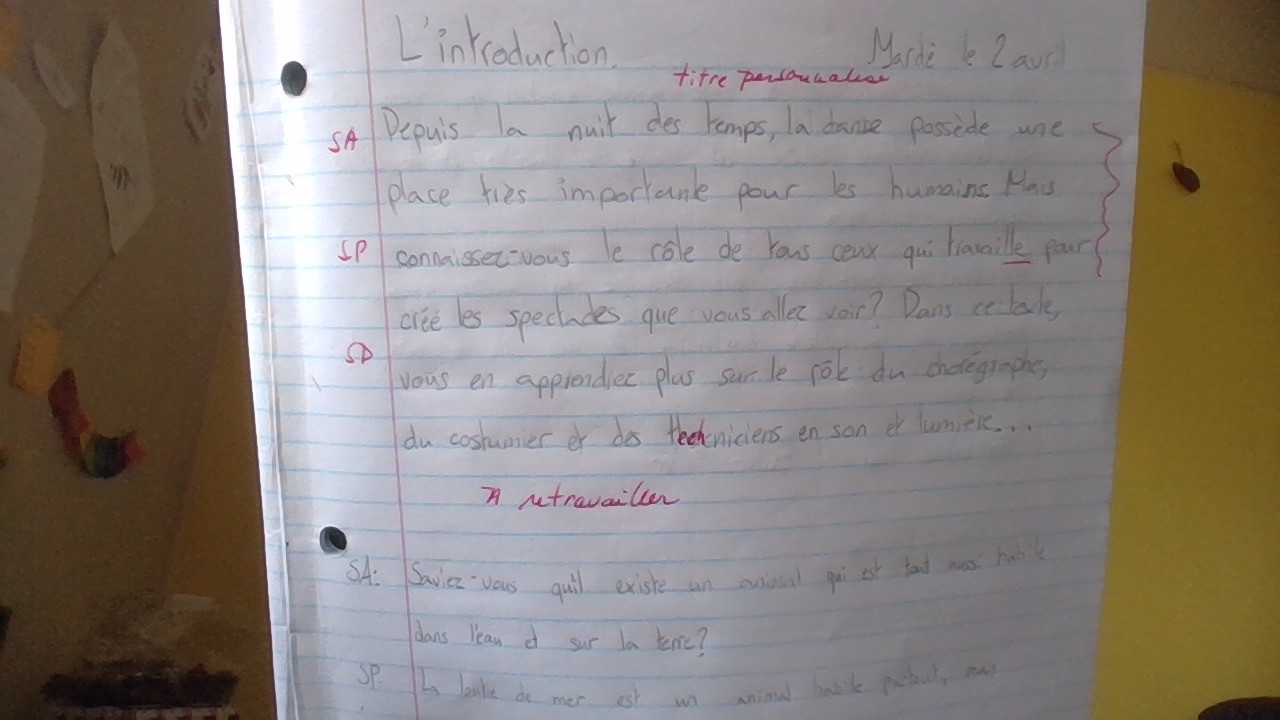 L'introduction. Mardi le 2 avril
titre personnalisé
SA Depuis la nuit des temps, la danse possède une
place très importante pour les humains. Mais
SP connaissez-vous le rôle de tous ceux qui travaille pour
créé les spectacles que vous allez voir? Dans ce texte,
SD
vous en apprendrez plus sur le rôle du chorégraphe,
du costumier et des techniciens en son et lumière...
À retravailler
SA: Saviez-vous qu'il existe un animal qui est tout aussi habile
dans l'eau et sur la terre?
SP: La loutre de mer est un animal habile partout, mais